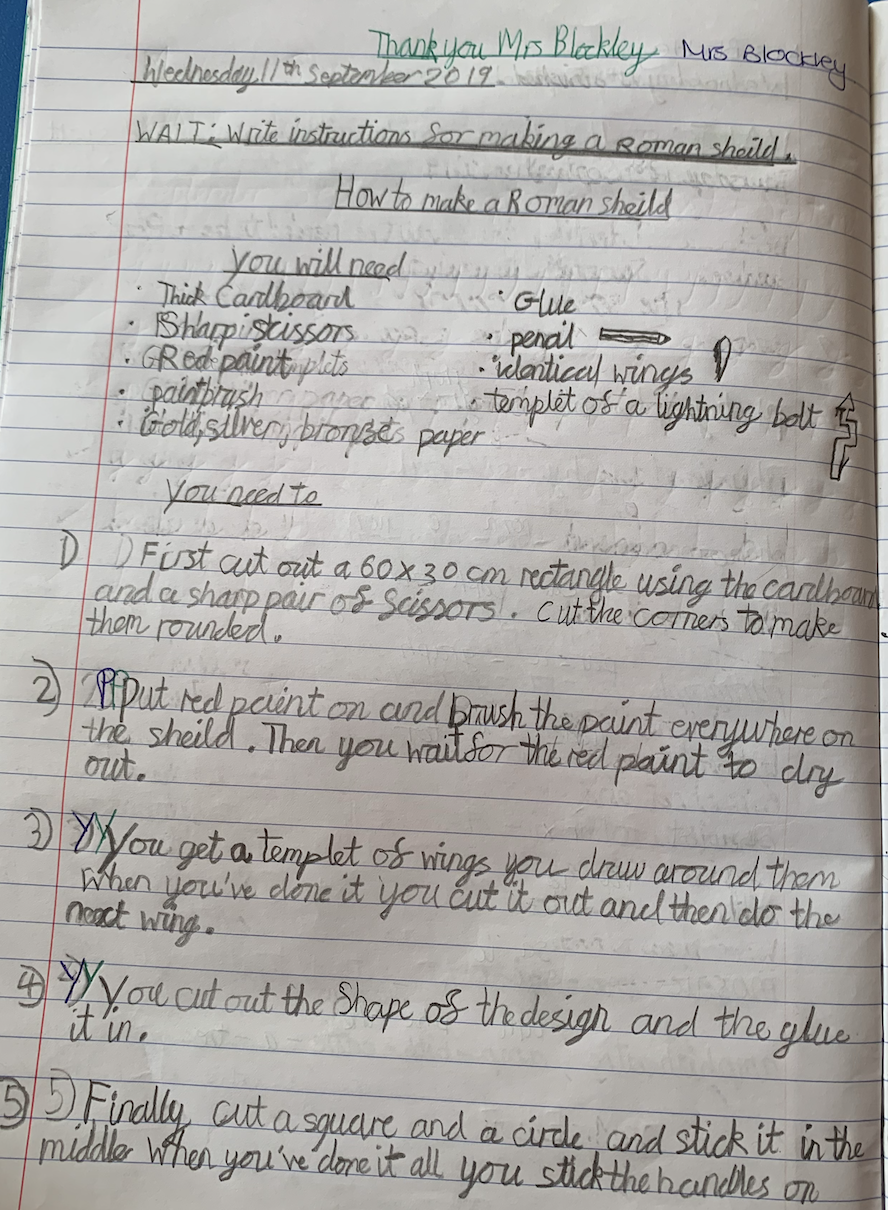 Thank you Mrs Blockley Mrs Blockley
Wednesday, 11th September 2019.
WALT: Write instructions for making a Roman sheild.
How to make a Roman sheild
you will need
• Thick Cardboard
• Sharp scissors
• Red paint
• paintbrush
• Gold, silver, bronze paper
• Glue
• pencil
• identical wings
• templet of a lightning bolt
you need to
1) 1) First cut out a 60 x 30 cm rectangle using the cardboard
and a sharp pair of scissors. Cut the corners to make
them rounded.
2) Put red paint on and brush the paint everywhere on
the sheild. Then you wait for the red paint to dry
out.
3) You get a templet of wings you draw around them
When you've done it you cut it out and then do the
next wing.
4) You cut out the shape of the design and the glue
it in.
5) 5) Finally, cut a square and a circle and stick it in the
middle When you've done it all you stick the handles on